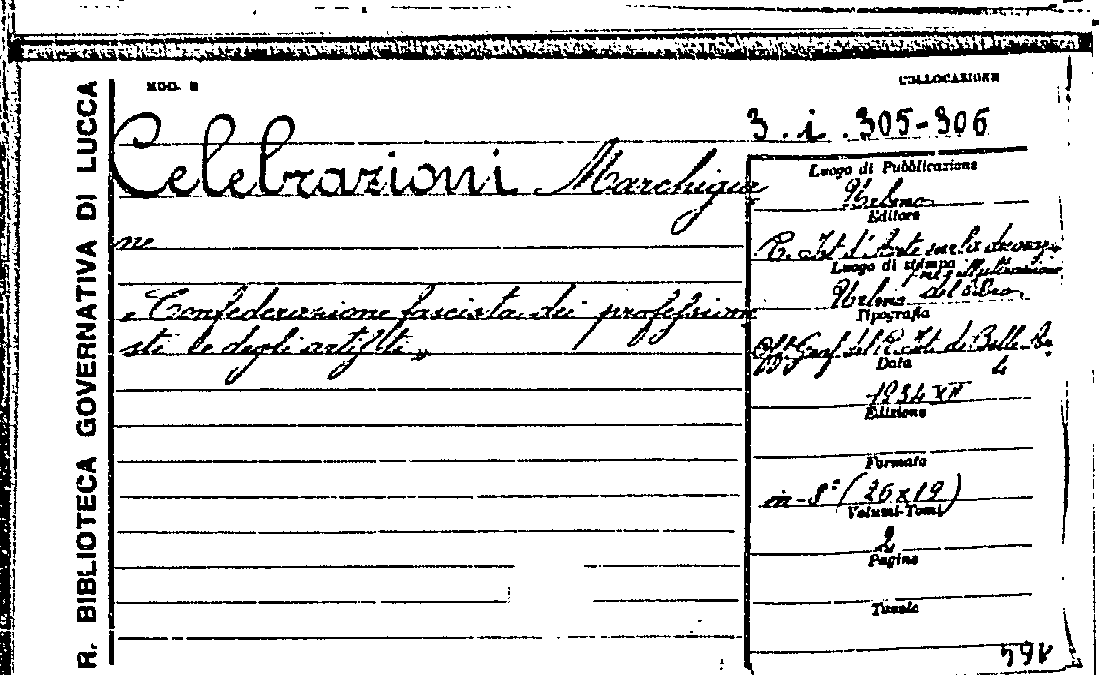 R. BIBLIOTECA GOVERNATIVA DI LUCCA
MOD. B
COLLOCAZIONE
3. i. 305-306
Celebrazioni Marchigia
ne
« Confederazione fascista dei professioni
sti e degli artisti »
Luogo di Pubblicazione
Urbino
Editore
R. Ist. d'Arte per la decoraz.
Luogo di stampa
per illustrazione
Urbino del Libro
Tipografia
Off. Graf. del R. Ist. di Belle
Data
1934 XII
Edizione
Formato
in-8° (26x19)
Volumi-Tomi
2
Pagine
Tavole